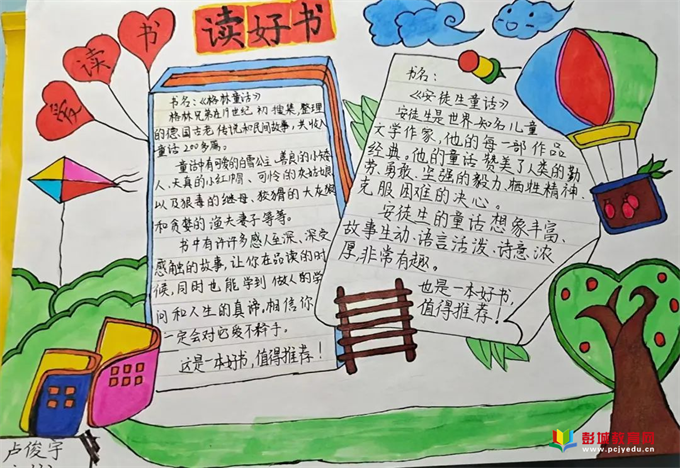 读好书
爱
读
书
书名：《格林童话》
格林兄弟在19世纪初搜集、整理
的德国古老传说和民间故事，共收入
童话200多篇。
童话中有可爱的白雪公主、善良的小矮
人、天真的小红帽、可怜的灰姑娘，
以及狠毒的继母、狡猾的大灰狼
和贪婪的渔夫妻子等等。
书中有许许多多感人至深、深受
感触的故事，让你在品读的时
候，同时也能学到做人的学
问和人生的真谛。相信你
一定会对它爱不释手。
这是一本好书，值得推荐！
书名：
《安徒生童话》
安徒生是世界知名儿童
文学作家，他的每一部作品
经典。他的童话赞美了人类的勤
劳、勇敢、坚强的毅力、牺牲精神、
克服困难的决心。
安徒生的童话想象丰富、
故事生动、语言活泼、诗意浓
厚，非常有趣。
也是一本好书，
值得推荐！
卢俊宇
彭城教育网
www.pcjyedu.cn